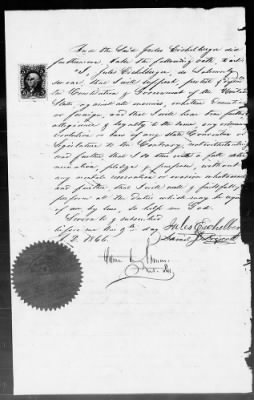 And the Said Jules Eichelberger did
furthermore take the following oath, to wit:
"I, Jules Eichelberger, do Solemnly
swear, that I will support, protect & defend
the Constitution & Government of the United
States, against all enemies, whether Domestic
or foreign, and that I will bear true faith,
allegiance & loyalty to the same, any
or law of any State Convention or
Legislature to the Contrary notwithstanding
and further, that I do this with a full deter-
mination, pledge & purpose, without
any mental reservation or evasion whatsoever
and further, that I will well & faithfully
perform all the duties which may be required
of me by law, so help me God.
Sworn to & subscribed
before me this 9th day
1866.
Jules Eichelberger